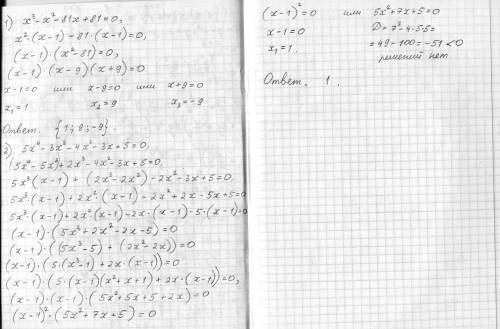 1) x³-x²-81x+81=0,
x²·(x-1)-81·(x-1)=0,
(x-1)·(x²-81)=0,
(x-1)·(x-9)(x+9)=0
x-1=0 или x-9=0 или x+9=0
x₁=1 x₂=9 x₃=-9
Ответ. {1; 9; -9}.
2) 5x⁴-3x³-4x²-3x+5=0,
(5x⁴-5x³)+2x³-4x²-3x+5=0,
5x³(x-1)+(2x³-2x²)-2x²-3x+5=0
5x³·(x-1)+2x²·(x-1)-2x²+2x-5x+5=0
5x³(x-1)+2x²(x-1)-2x·(x-1)-5·(x-1)=0
(x-1)·(5x³+2x²-2x-5)=0
(x-1)·((5x³-5)+(2x²-2x))=0
(x-1)·(5·(x³-1)+2x·(x-1))=0
(x-1)·(5·(x-1)(x²+x+1)+2x·(x-1))=0,
(x-1)·(x-1)·(5x²+5x+5+2x)=0
(x-1)²·(5x²+7x+5)=0
(x-1)²=0 или 5x²+7x+5=0
x-1=0 D=7²-4·5·5=
x₁=1. =49-100=-51<0
решений нет
Ответ. 1.